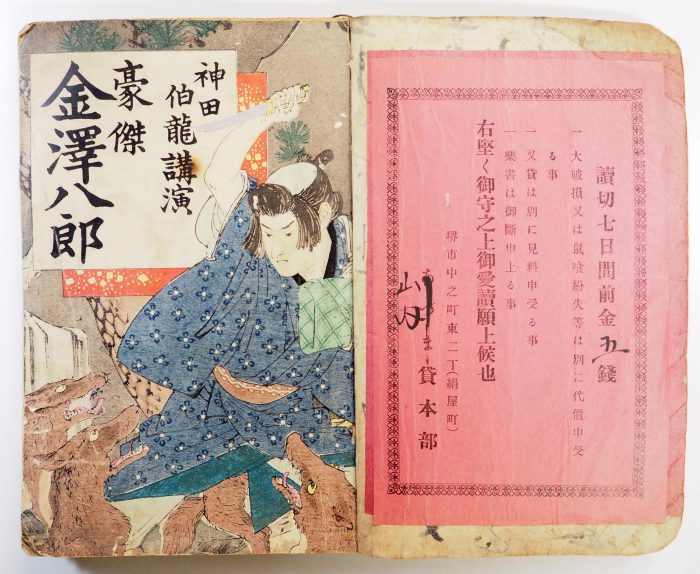 神田
伯龍講演
豪傑
金澤八郎
讀切七日間前金五錢
一 大破損又は鼠喰紛失等は別に代價申受
る事
一 又貸は別に見料申受る事
一 樂書は御斷申上る事
右堅く御守之上御愛讀願上候也
堺市中之町東二丁(絹屋町)
貸本部